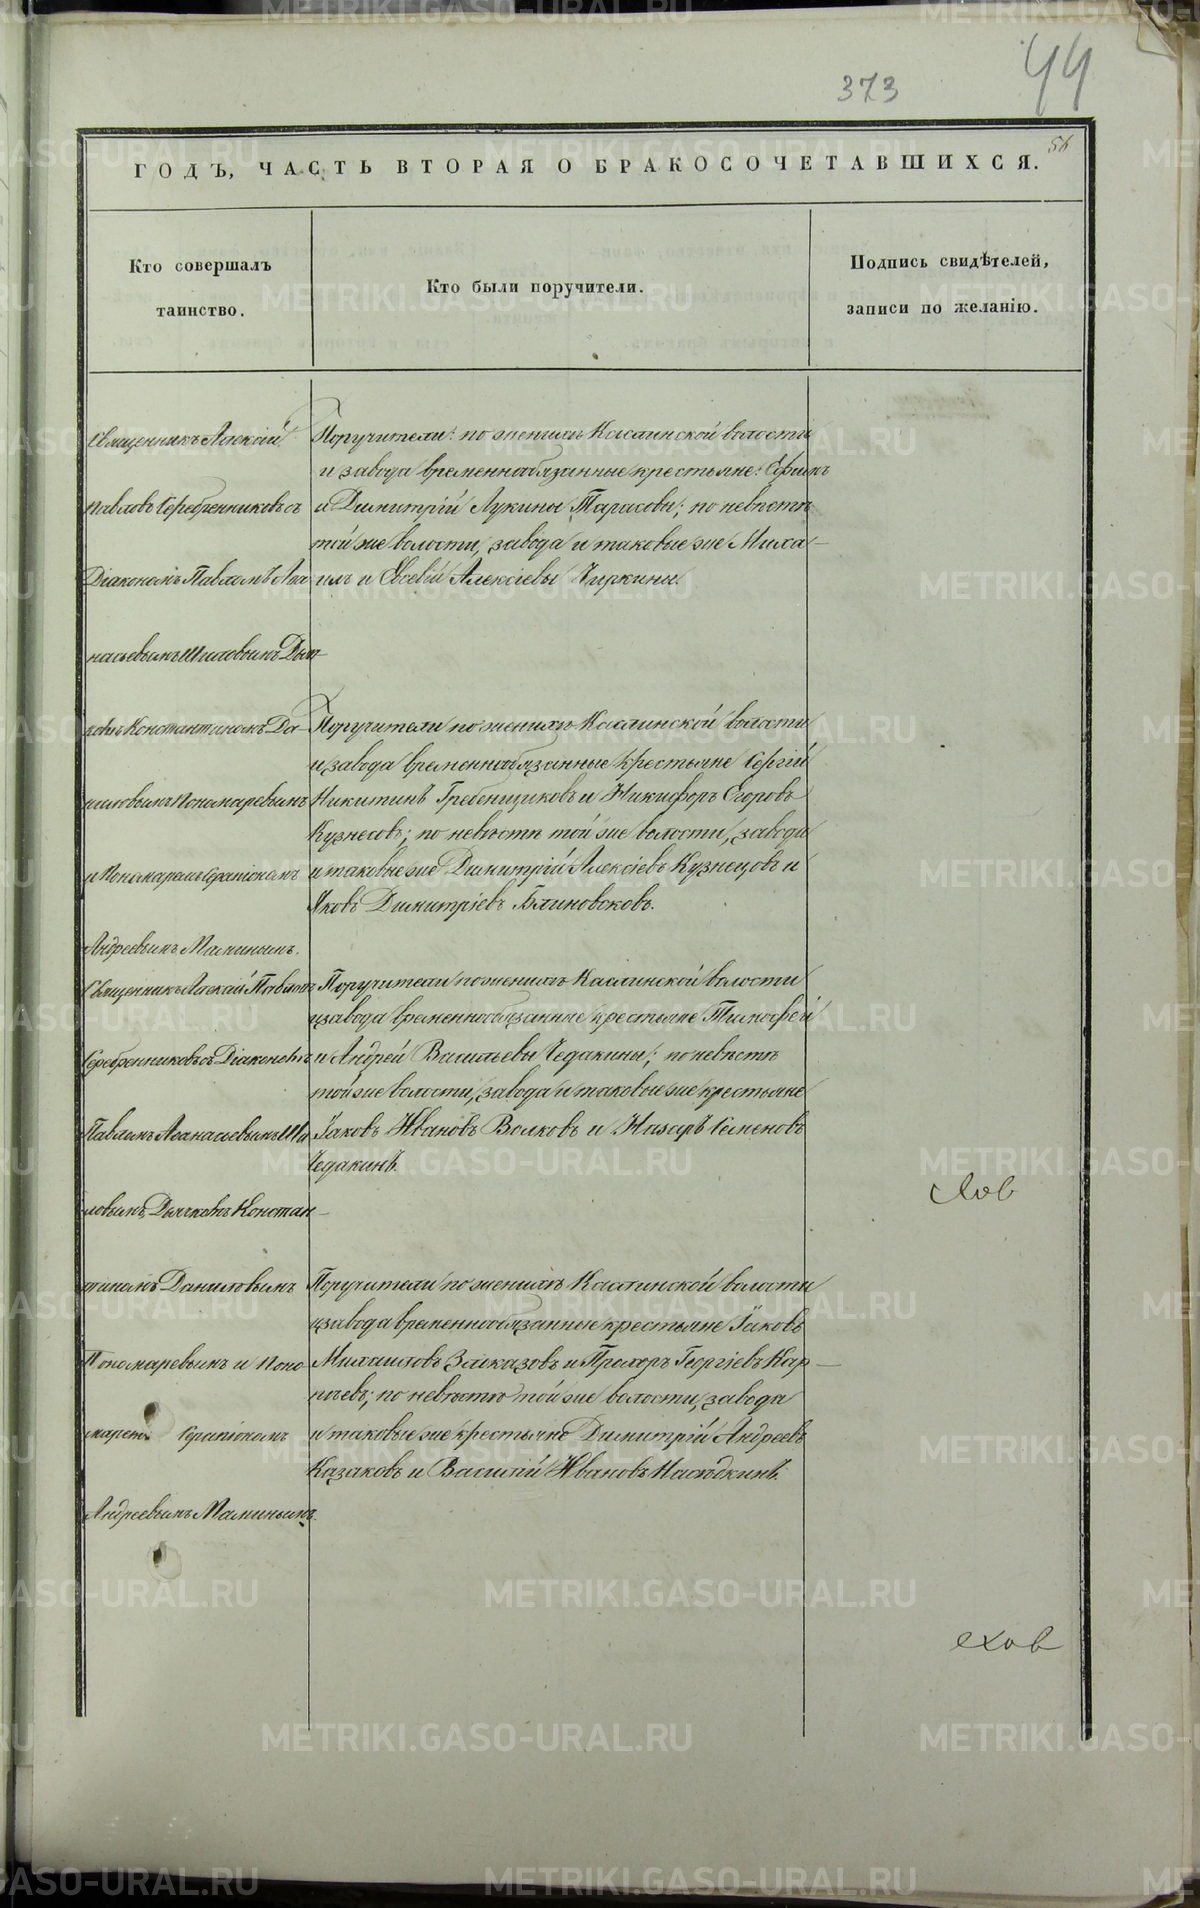 373
44
56
ГОДЪ, ЧАСТЬ ВТОРАЯ О БРАКОСОЧЕТАВШИХСЯ.
Кто совершалъ
таинство.
Кто были поручители.
Подпись свидѣтелей,
записи по желанію.
Священникъ Алексій
Павловъ Серебренниковъ съ
Діакономъ Павломъ Аѳа
насьевымъ Шиловымъ Дьяч-
комъ Константиномъ Да-
ниловымъ Пономаревымъ
и Пономаремъ Серапіономъ
Андреевымъ Маминымъ.
Поручители: по женихѣ Каслинской волости
и завода временнообязанные крестьяне: Ефимъ
и Димитрій Лукины Тарасовы; по невѣстѣ
той же волости, завода и таковые же Миха-
илъ и Евсевій Алексіевы Чиркины.
Поручители по женихѣ Каслинской волости
и завода временнообязанные крестьяне Сергій
Никитинъ Гребенщиковъ и Никифоръ Егоровъ
Кузнецовъ; по невѣстѣ той же волости, завода
и таковые же Димитрій Алексіевъ Кузнецовъ и
Яковъ Димитріевъ Блиновсковъ.
Священникъ Алексій Павловъ
Серебренниковъ съ Діакономъ
Павломъ Аѳанасьевымъ Ши
ловымъ, Дьячкомъ Констан-
тиномъ Даниловымъ
Пономаревымъ и Поно
маремъ Серапіономъ
Андреевымъ Маминымъ.
Поручители по женихѣ Каслинской волости
и завода временнообязанные крестьяне Тимофей
и Андрей Васильевы Чедакины; по невѣстѣ
той же волости, завода и таковые же крестьяне
Іаковъ Ивановъ Волковъ и Назаръ Семеновъ
Чедакинъ.
Поручители по женихѣ Каслинской волости
и завода временнообязанные крестьяне Іаковъ
Михаиловъ Заказовъ и Прохоръ Георгіевъ Кар-
пачевъ; по невѣстѣ той же волости, завода
и таковые же крестьяне Димитрій Андреевъ
Казаковъ и Василій Ивановъ Наслѣдкинъ.
METRIKI.GASO-URAL.RU